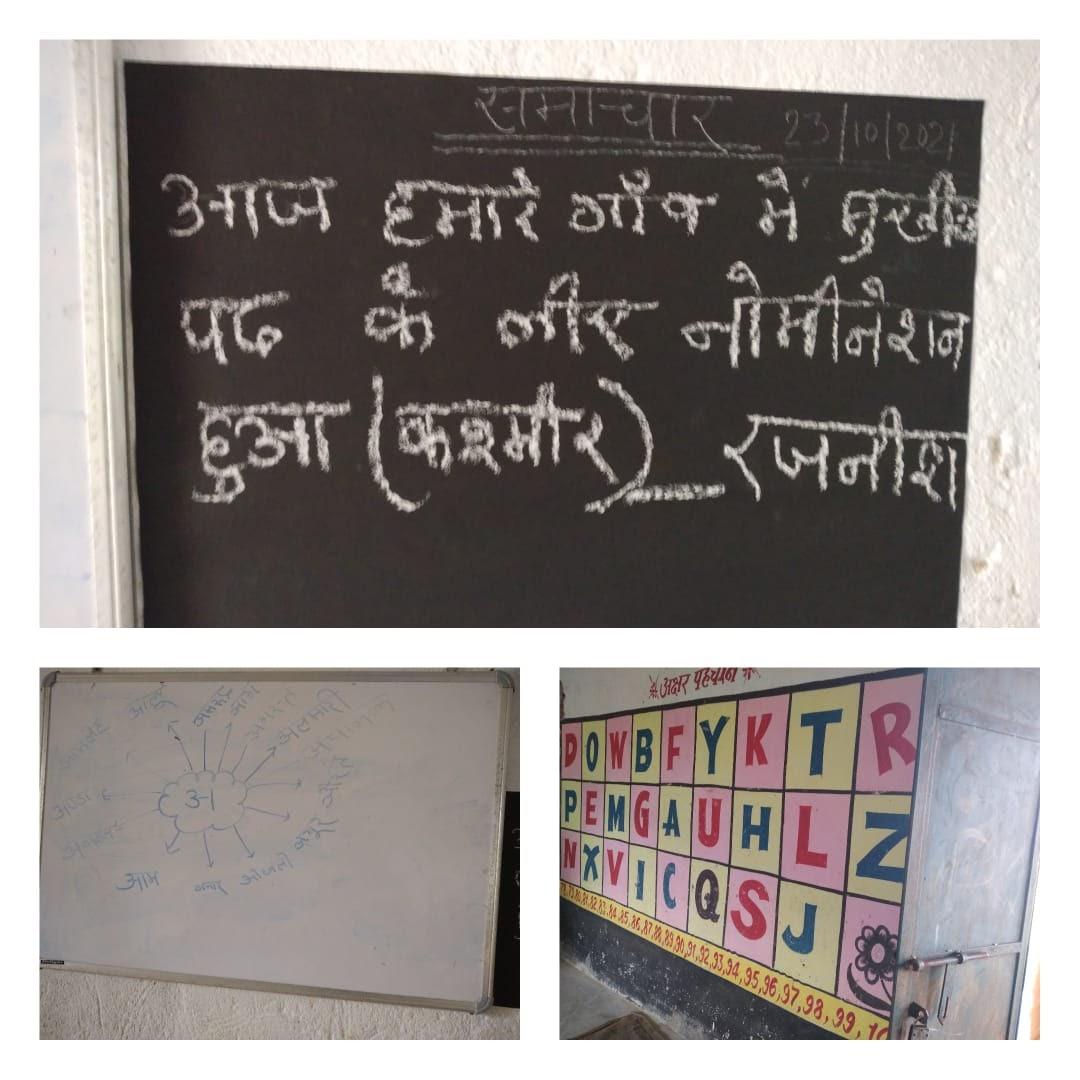 समाचार 23/10/2021
आज हमारे गाँव में मुखीया
पद के लीए नोमीनेशन
हुआ (कश्मीर) रजनीश
आलू
अमरूद
अलमारी
औरत
अंगूर
ओखली
अनार
आम
अ
अक्षर पहचान
D O W B F Y K T R
P E M G A U H L Z
N X V I C Q S J
78, 79, 80, 81, 82, 83, 84, 85, 86, 87, 88, 89, 90, 91, 92, 93, 94, 95, 96, 97, 98, 99, 10